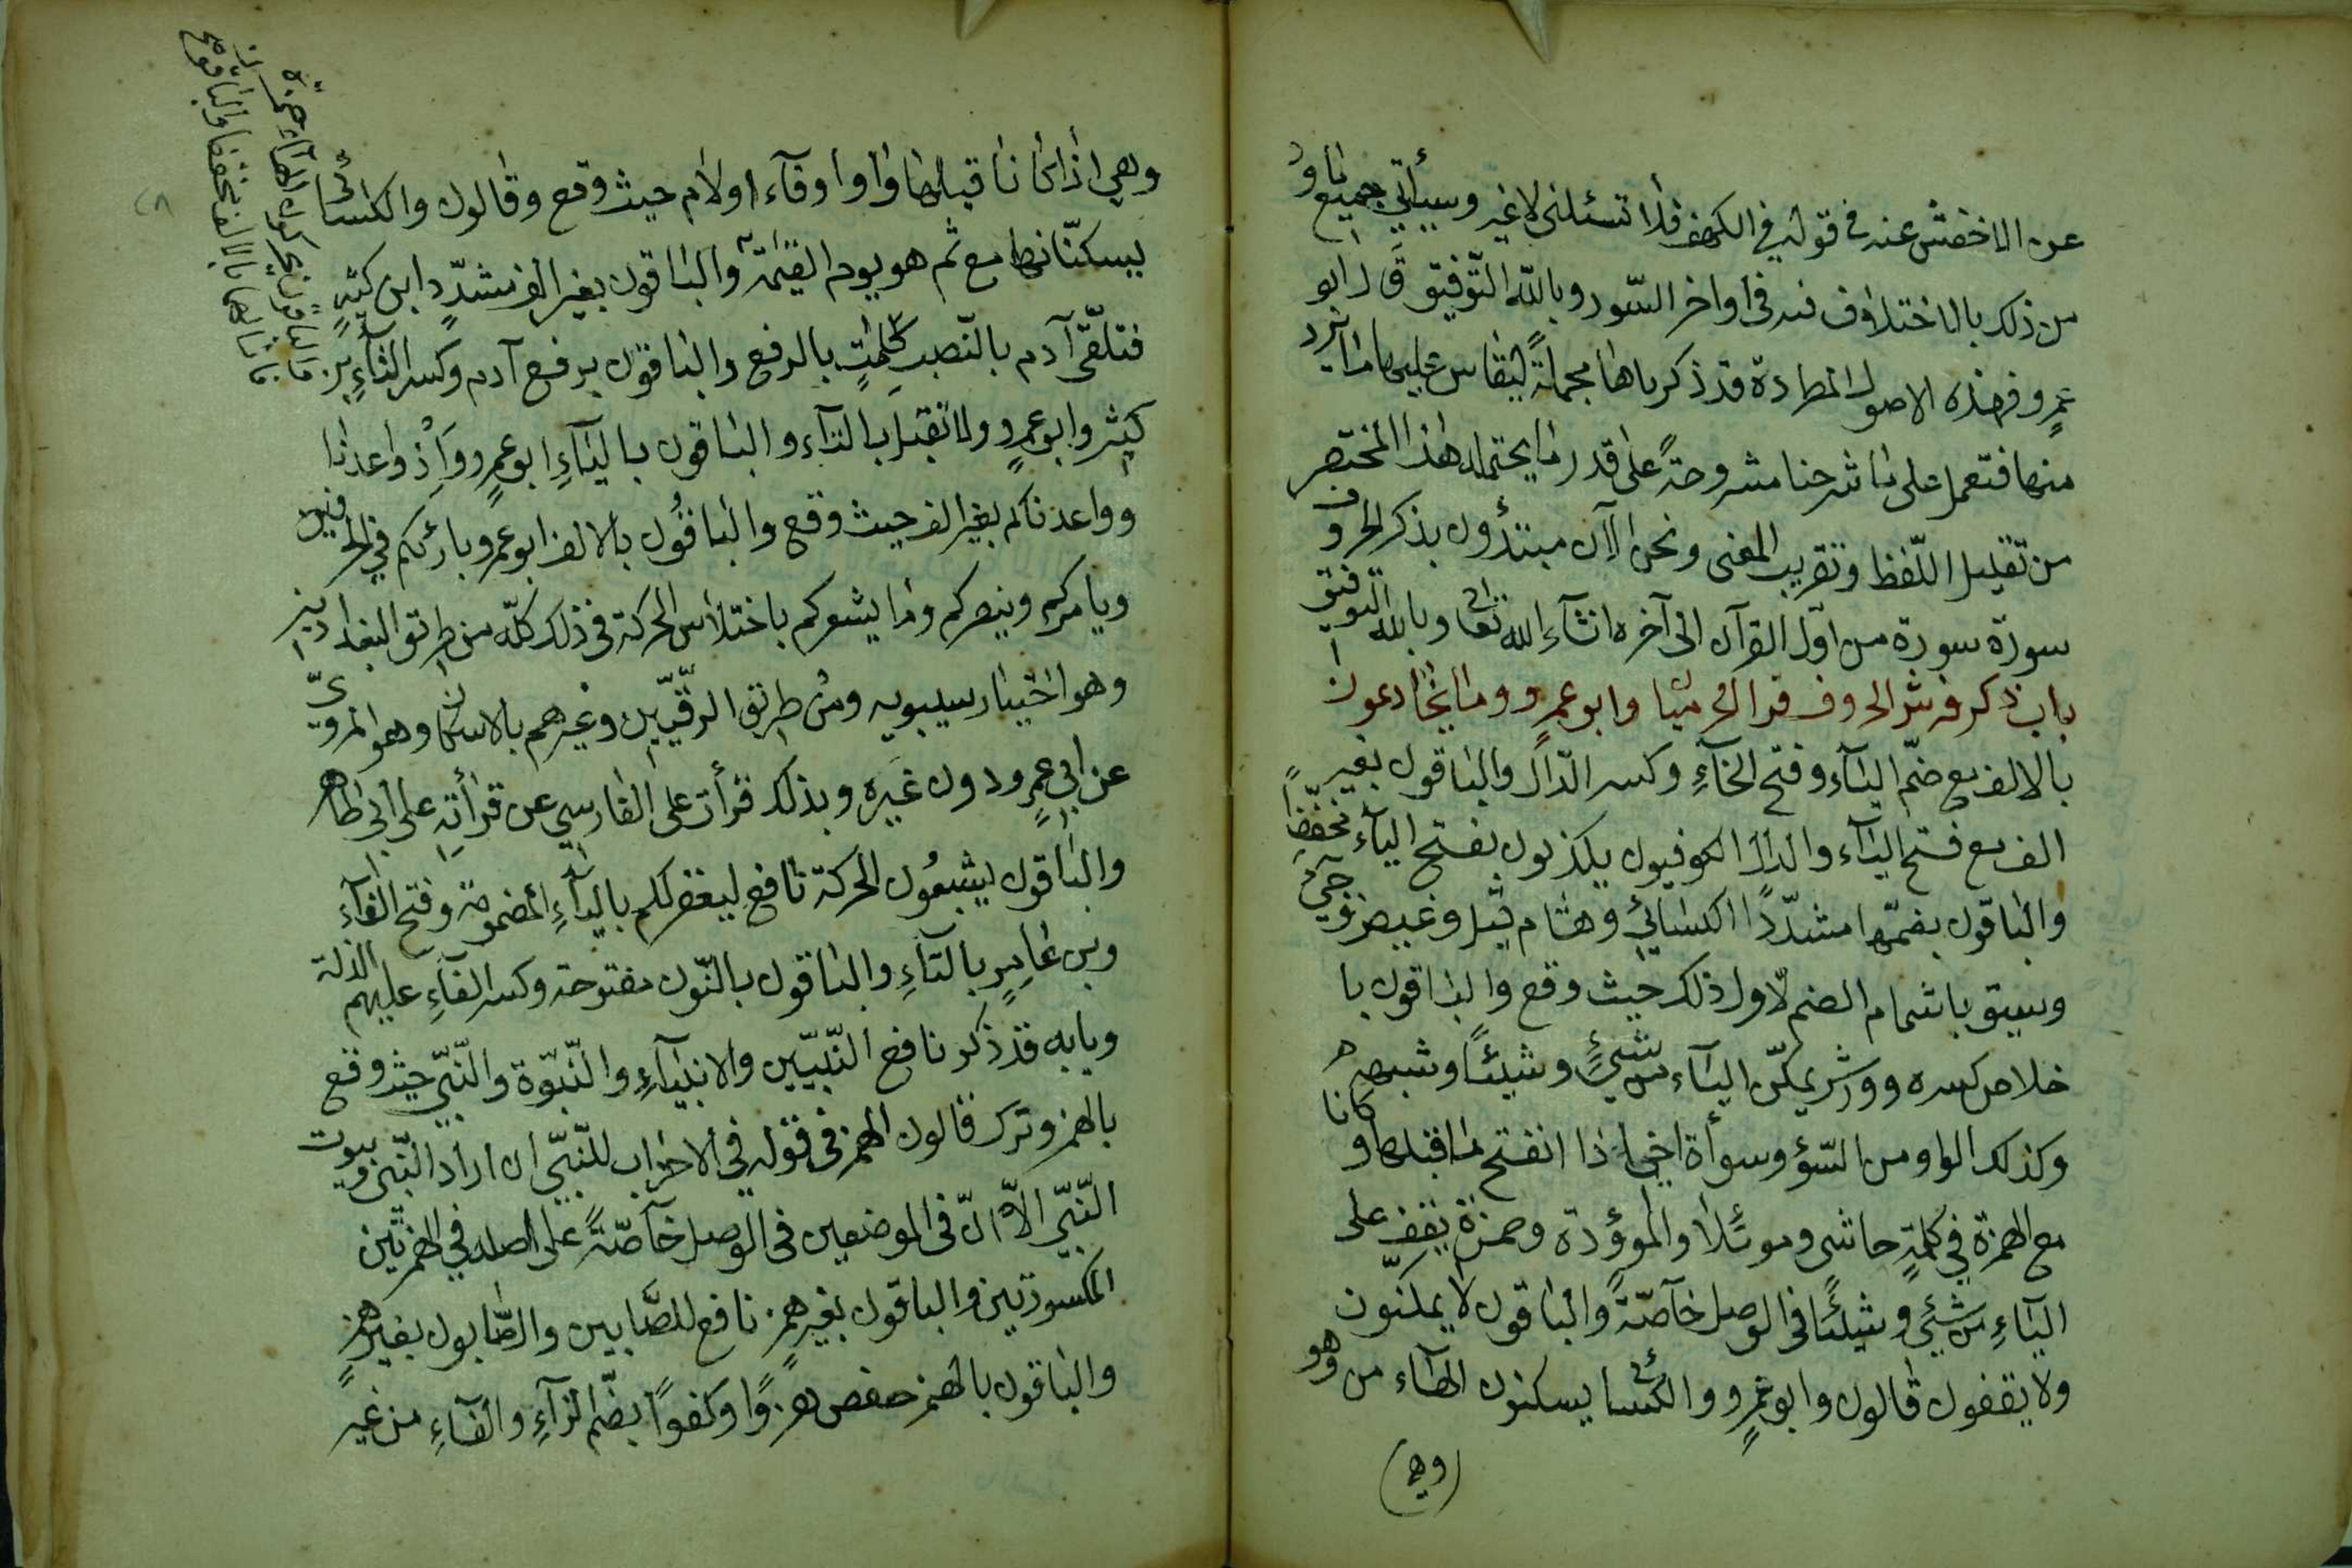 عن الاخفش عنه في قوله في الكهف فلا تسئلنى لاغير وسيأتي جميع ما ورد
من ذلك بالاختلاف فيه في اواخر السّور وبالله التّوفيق قال ابو
عمرٍو فهذه الاصول المطردة قد ذكرناها مجملةً ليقاس عليها ما يرد
منها فتعمل على ما شرحنا مشروحةً على قدر ما يحتمله هذا المختصر
من تقليل اللّفظ وتقريب المعنى ونحن الآن مبتدؤن بذكر الحروف
سورة سورة من اوّل القرآن الى آخره انشآء الله تعالى وبالله التوفيق
باب ذكر فرش الحروف قرأ الحرميّا وابو عمرٍو وما يخادعون
بالالف مع ضمّ اليآء وفتح الخآءِ وكسر الدّال والباقون بغير
الف مع فتح اليآء والدّال الكوفيون يكذبون بفتح اليآء مخفّفًا
والباقون بضمّها مشدّدًا الكسائي وهشام قيل وغيض وجيء
وسيق باشمام الضم لاول ذلك حيث وقع والباقون با
خلاص كسره وورش يمكّن اليآء من شيءٍ وشيئًا وشبهه
وكذلك الواو من السّوء وسوأة اخي اذا انفتح ما قبلها وكانا
مع الهمزة في كلمةٍ حاشى وموئلا والموؤدة وحمزة يقف على
اليآءِ من شئي وشيئًا في الوصل خآصّةً والباقون لا يمكّنون
ولا يقفون قالون وابو عمرٍو والكسائي يسكنون الهآء من وهو
(وهي)
وهي اذا كانا قبلها واوا وفآء اولام حيث وقع وقالون والكسائي
يسكّنانها مع ثم هو يوم القيمة والباقون بغير الف مشدّد ابن كثيرٍ
فتلقّى آدم بالنّصب كلمٰتٍ بالرفع والباقون برفع آدم وكسر التآءِ ابن
كثير وابو عمرٍو ولا تقبل بالتآء والباقون باليآءِ ابو عمرٍو واِذ واعدنا
وواعدناكم بغير الف حيث وقع والباقون بالالف ابو عمرو بارئكم في الحرفين
ويامركم وينصركم وما يشعركم باختلاس الحركة في ذلك كلّه من طريق البغداديين
وهو اختيار سيبويه ومن طريق الرقّيّين وغيرهم بالاسكان وهو المرويّ
عن ابي عمرٍو دون غيره وبذلك قرأت على الفارسي عن قرأتهِ على ابي طاهر
والباقون يشبعون الحركة نافع ليغفر لكم باليآءِ المضمومة وفتح الفآء
وبن عامرٍ بالتآءِ والباقون بالنّون مفتوحة وكسر الفآءِ عليهم الذلة
وبابه قد ذكر نافع النّبيّين والانبيآءِ والنّبوّة والنّبيّ حيث وقع
بالهمز وترك قالون الهمز في قوله في الاحزاب للنّبيّ ان اراد النّبي وبيوت
النّبيّ الّا انّ في الموضعين في الوصل خآصّةً على اصله في الهمزتين
المكسورتين والباقون بغير همزٍ نافع للصّابين والصّابون بغير همزٍ
والباقون بالهمز حفص هزوًا وكفوًا بضمّ الزآءِ والفآءِ من غير